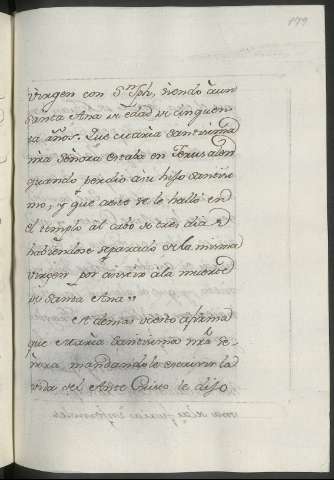 179
Virgen con Sn Jph, siendo aun
Santa Ana de edad de cinquen
ta años. Que Maria Santissima
nra Señora estaba en Jerusalen
quando perdio a su hijo Santissi
mo, y que este se le halló en
el templo al cabo de tres dias
habiendose separado de la misma
Virgen por asistir a la muerte
de Santa Ana"
Ademas de esto afirma
que Maria Santissima nra Se
ñora mandandole escrivir la
vida del Ante Cristo le dijo